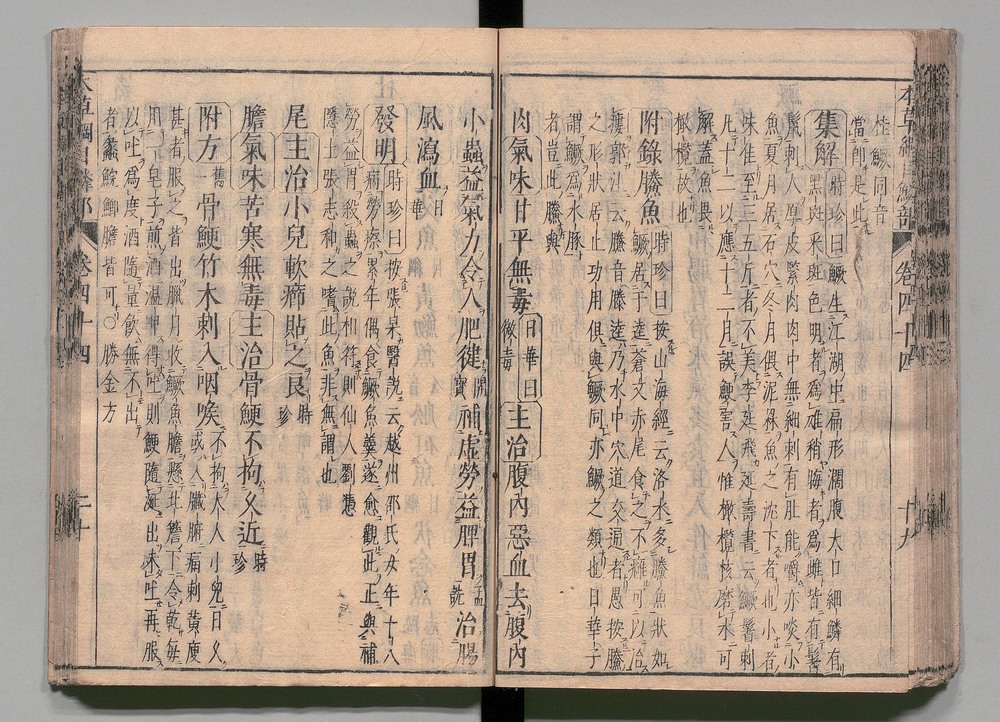 本草綱目鱗部 卷四十四 十九
桂鱖同音
當卽是此
集解時珍曰鱖生江湖中扁形濶腹大口細鱗有
黑斑采斑色明者爲雄稍晦者爲雌皆有鬐
鬣刺人厚皮緊肉肉中無細刺有肚能嚼亦啖小
魚夏月居石穴冬月偎泥槑魚之沈下者也小者
味佳至三五斤者不美李廷飛延壽書云鱖鬐刺
凡十二以應十二月誤鯁害人惟橄欖核磨水可
解蓋魚畏
橄欖故也
附錄䲢魚時珍曰按山海經云洛水多䲢魚狀如
鱖居于逵蒼文赤尾食之不癰可以治
瘻郭注云䲢音滕逵乃水中穴道交通者愚按䲢
之形狀居止功用俱與鱖同亦鱖之類也日華子
謂鱖爲水豚
者豈此䲢與
肉氣味甘平無毒日華曰微毒主治腹內惡血去腹內
小蟲益氣力令人肥健開寶補虛勞益脾胃孟詵治腸
風瀉血日華
發明時珍曰按張杲醫說云越州邵氏女年十八
病勞瘵累年偶食鱖魚羹遂愈觀此正與補
勞益胃殺蟲之說相符則仙人劉憑
隱士張志和之嗜此魚非無謂也
尾主治小兒軟癤貼之良時珍
膽氣味苦寒無毒主治骨鯁不拘久近時珍
附方舊一骨鯁竹木刺入咽喉不拘大人小兒日久
或入臟腑痛刺黃瘦
甚者服之皆出臘月收鱖魚膽懸北簷下令乾每
用一皂子煎酒溫呷得吐則鯁隨涎出未吐再服
以吐爲度酒隨量飲無不出
者蠡鯇鯽膽皆可〇勝金方
本草綱目鱗部 卷四十四 二十